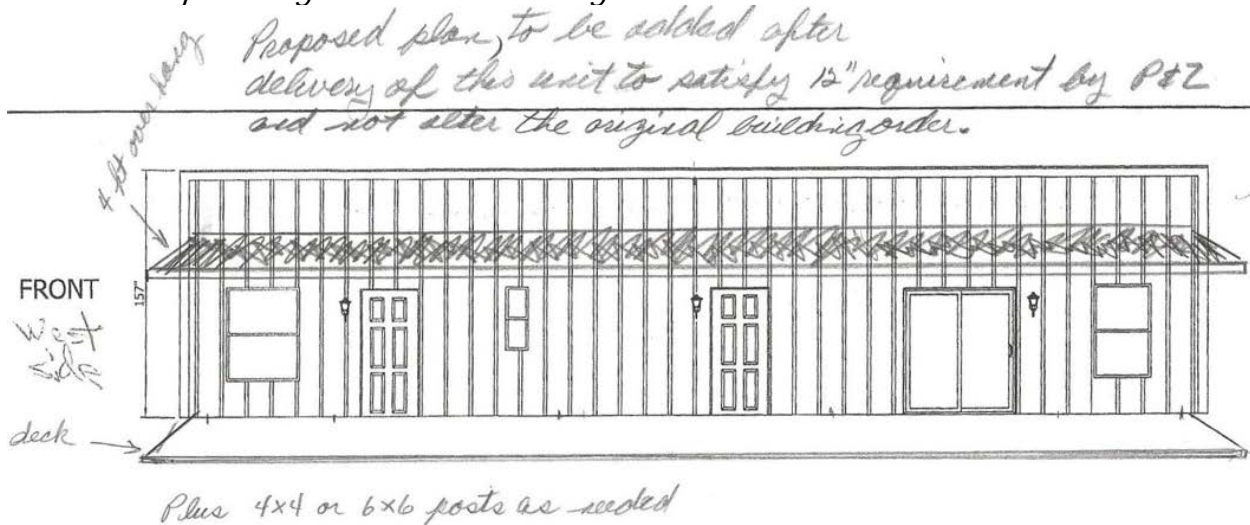 Proposed plan, to be added after
delivery of this unit to satisfy 12" requirement by P&Z
and not alter the original building order.
4 ft over hang
FRONT
West
side
157"
deck
Plus 4x4 or 6x6 posts as needed